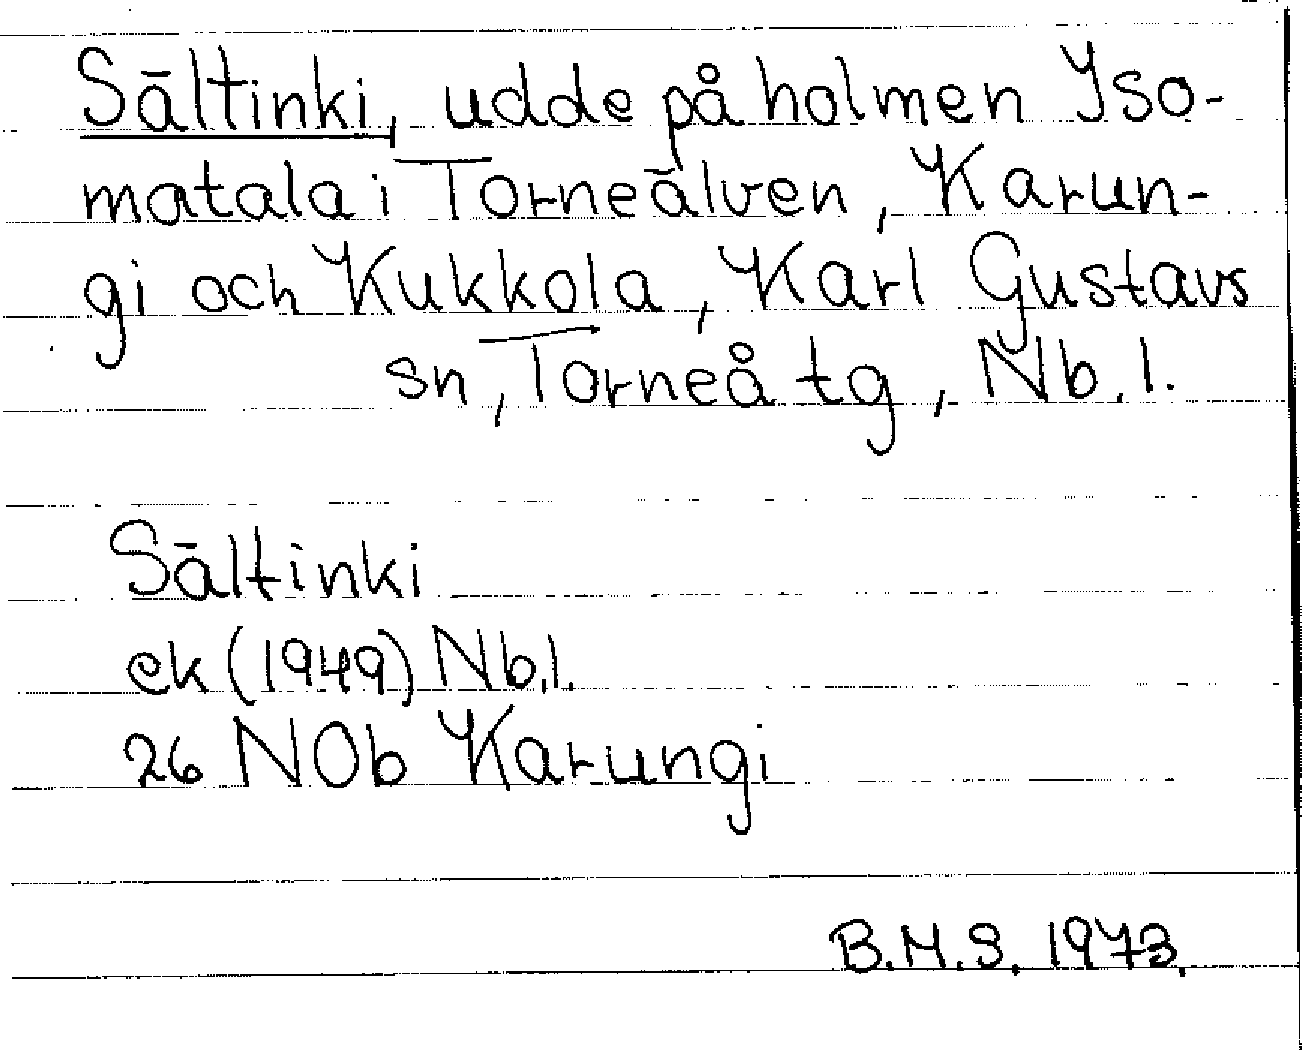 Sältinki, udde på holmen Iso-
matala i Torneälven, Karun-
gi och Kukkola, Karl Gustavs
sn, Torneå tg, Nb. l.
Sältinki
ek (1949) Nb.l.
26 NOb Karungi
B.M.S. 1973.